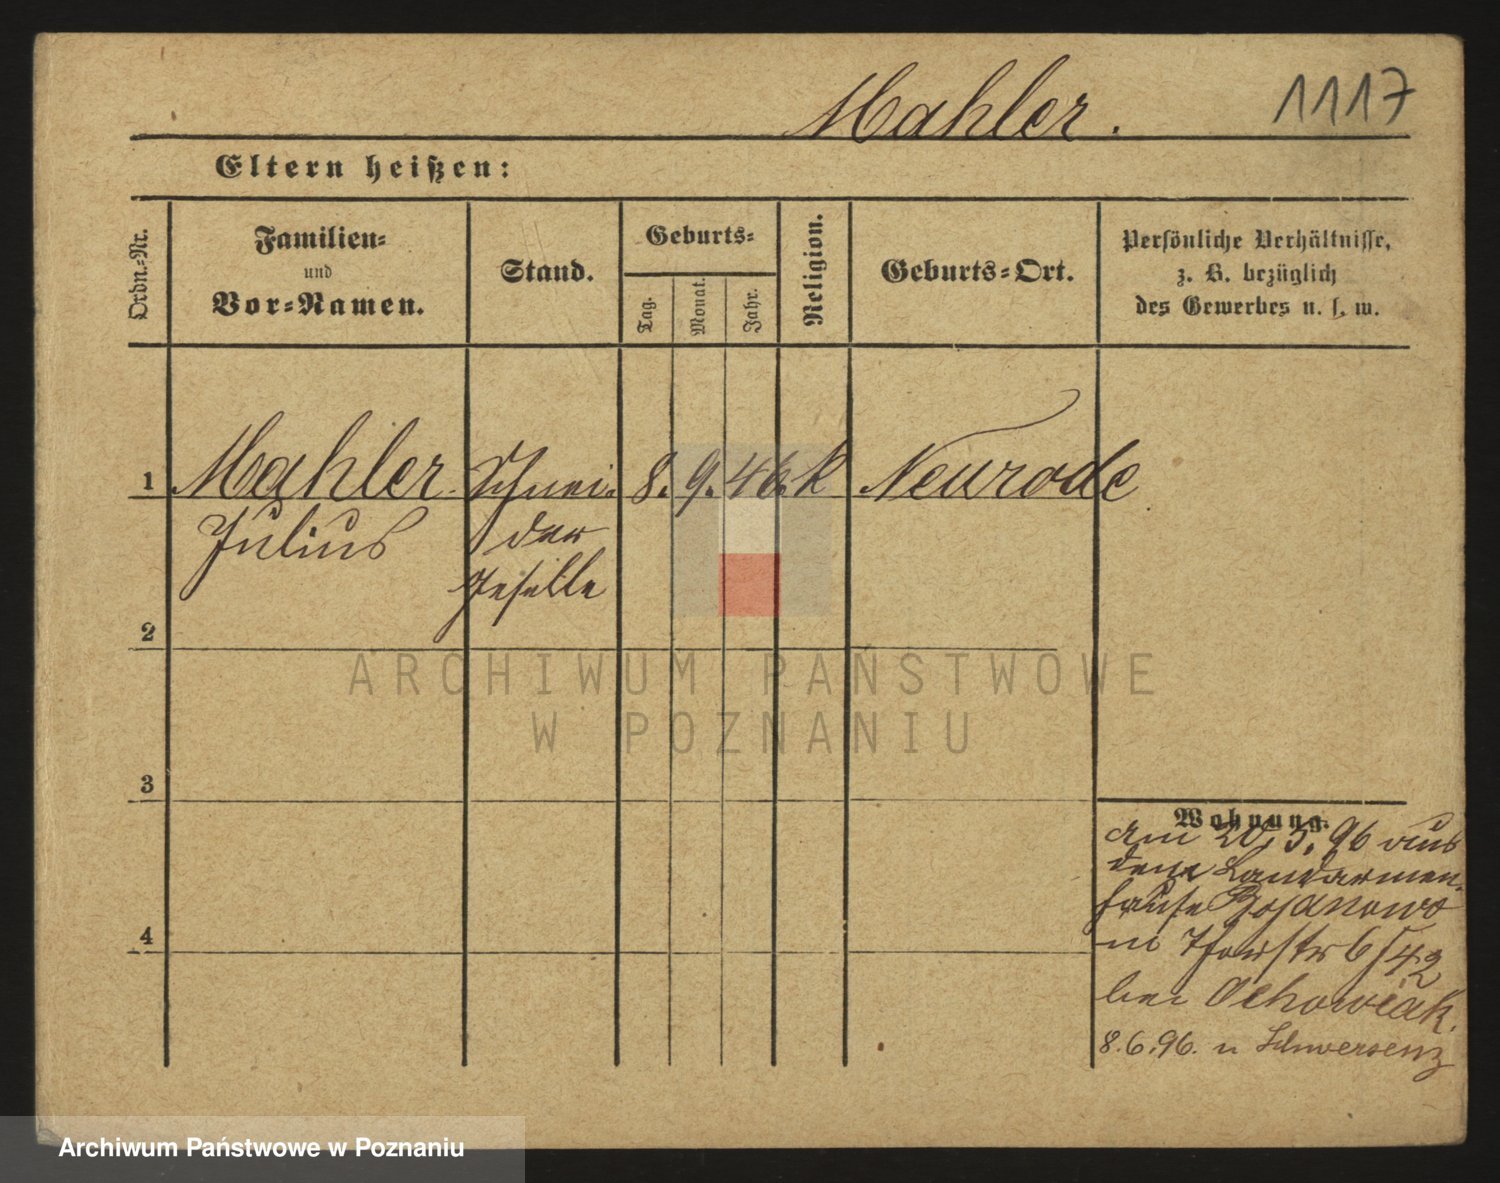 Mahler.
1117
Eltern heißen:
Ordn.-Nr.
Familien-
und
Vor-Namen.
Stand.
Geburts-
Tag.
Monat.
Jahr.
Religion.
Geburts-Ort.
Persönliche Verhältnisse,
z. B. bezüglich
des Gewerbes u. s. w.
1 Mahler Schnei- 8. 9. 46. k Neurode
Julius der
Geselle
2
3
4
Wohnung.
am 20.5.96 aus
dem Landarmen-
hause Bojanowo
42
bei Ochowiak.
8.6.96. n Schwersenz
ARCHIWUM PAŃSTWOWE
W POZNANIU
Archiwum Państwowe w Poznaniu